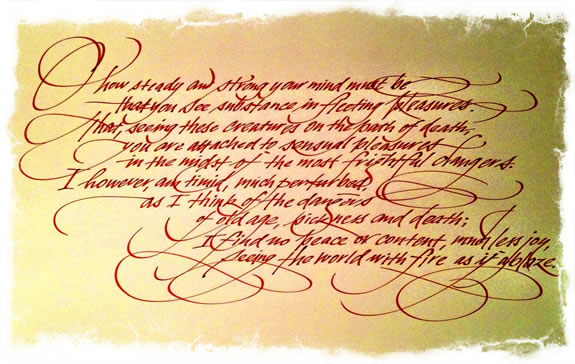 O how steady and strong your mind must be
that you see substance in fleeting pleasures
that, seeing these creatures on the path of death,
you are attached to sensual pleasures
in the midst of the most frightful dangers.
I however, am timid, much perturbed,
as I think of the dangers
of old age, sickness and death;
I find no peace or content, much less joy,
seeing the world with fire as if ablaze.